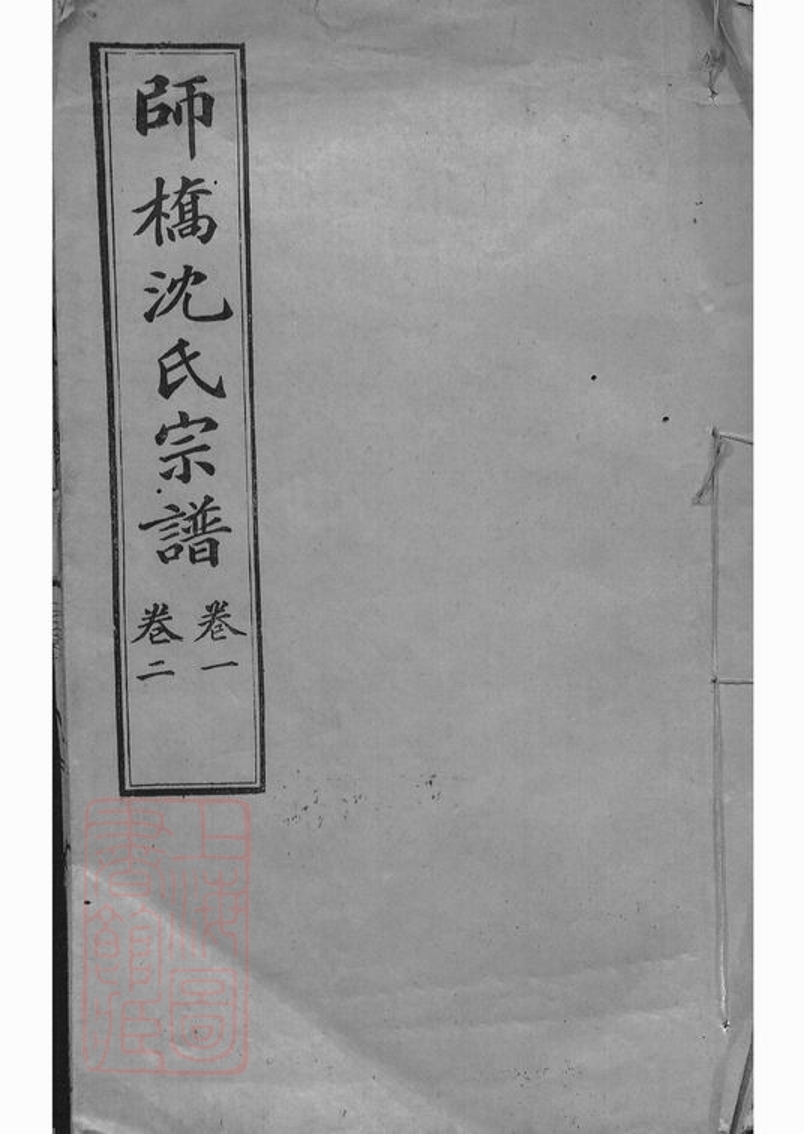 師橋沈氏宗譜
卷一
卷二
上海圖
書館藏